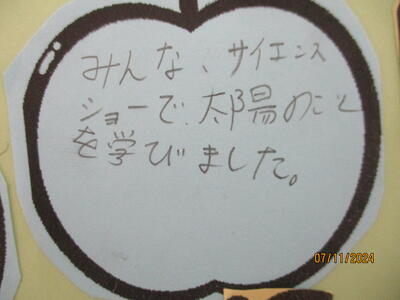 みんな、サイエンス
ショーで、太陽のこと
を学びました。
07/11/2024